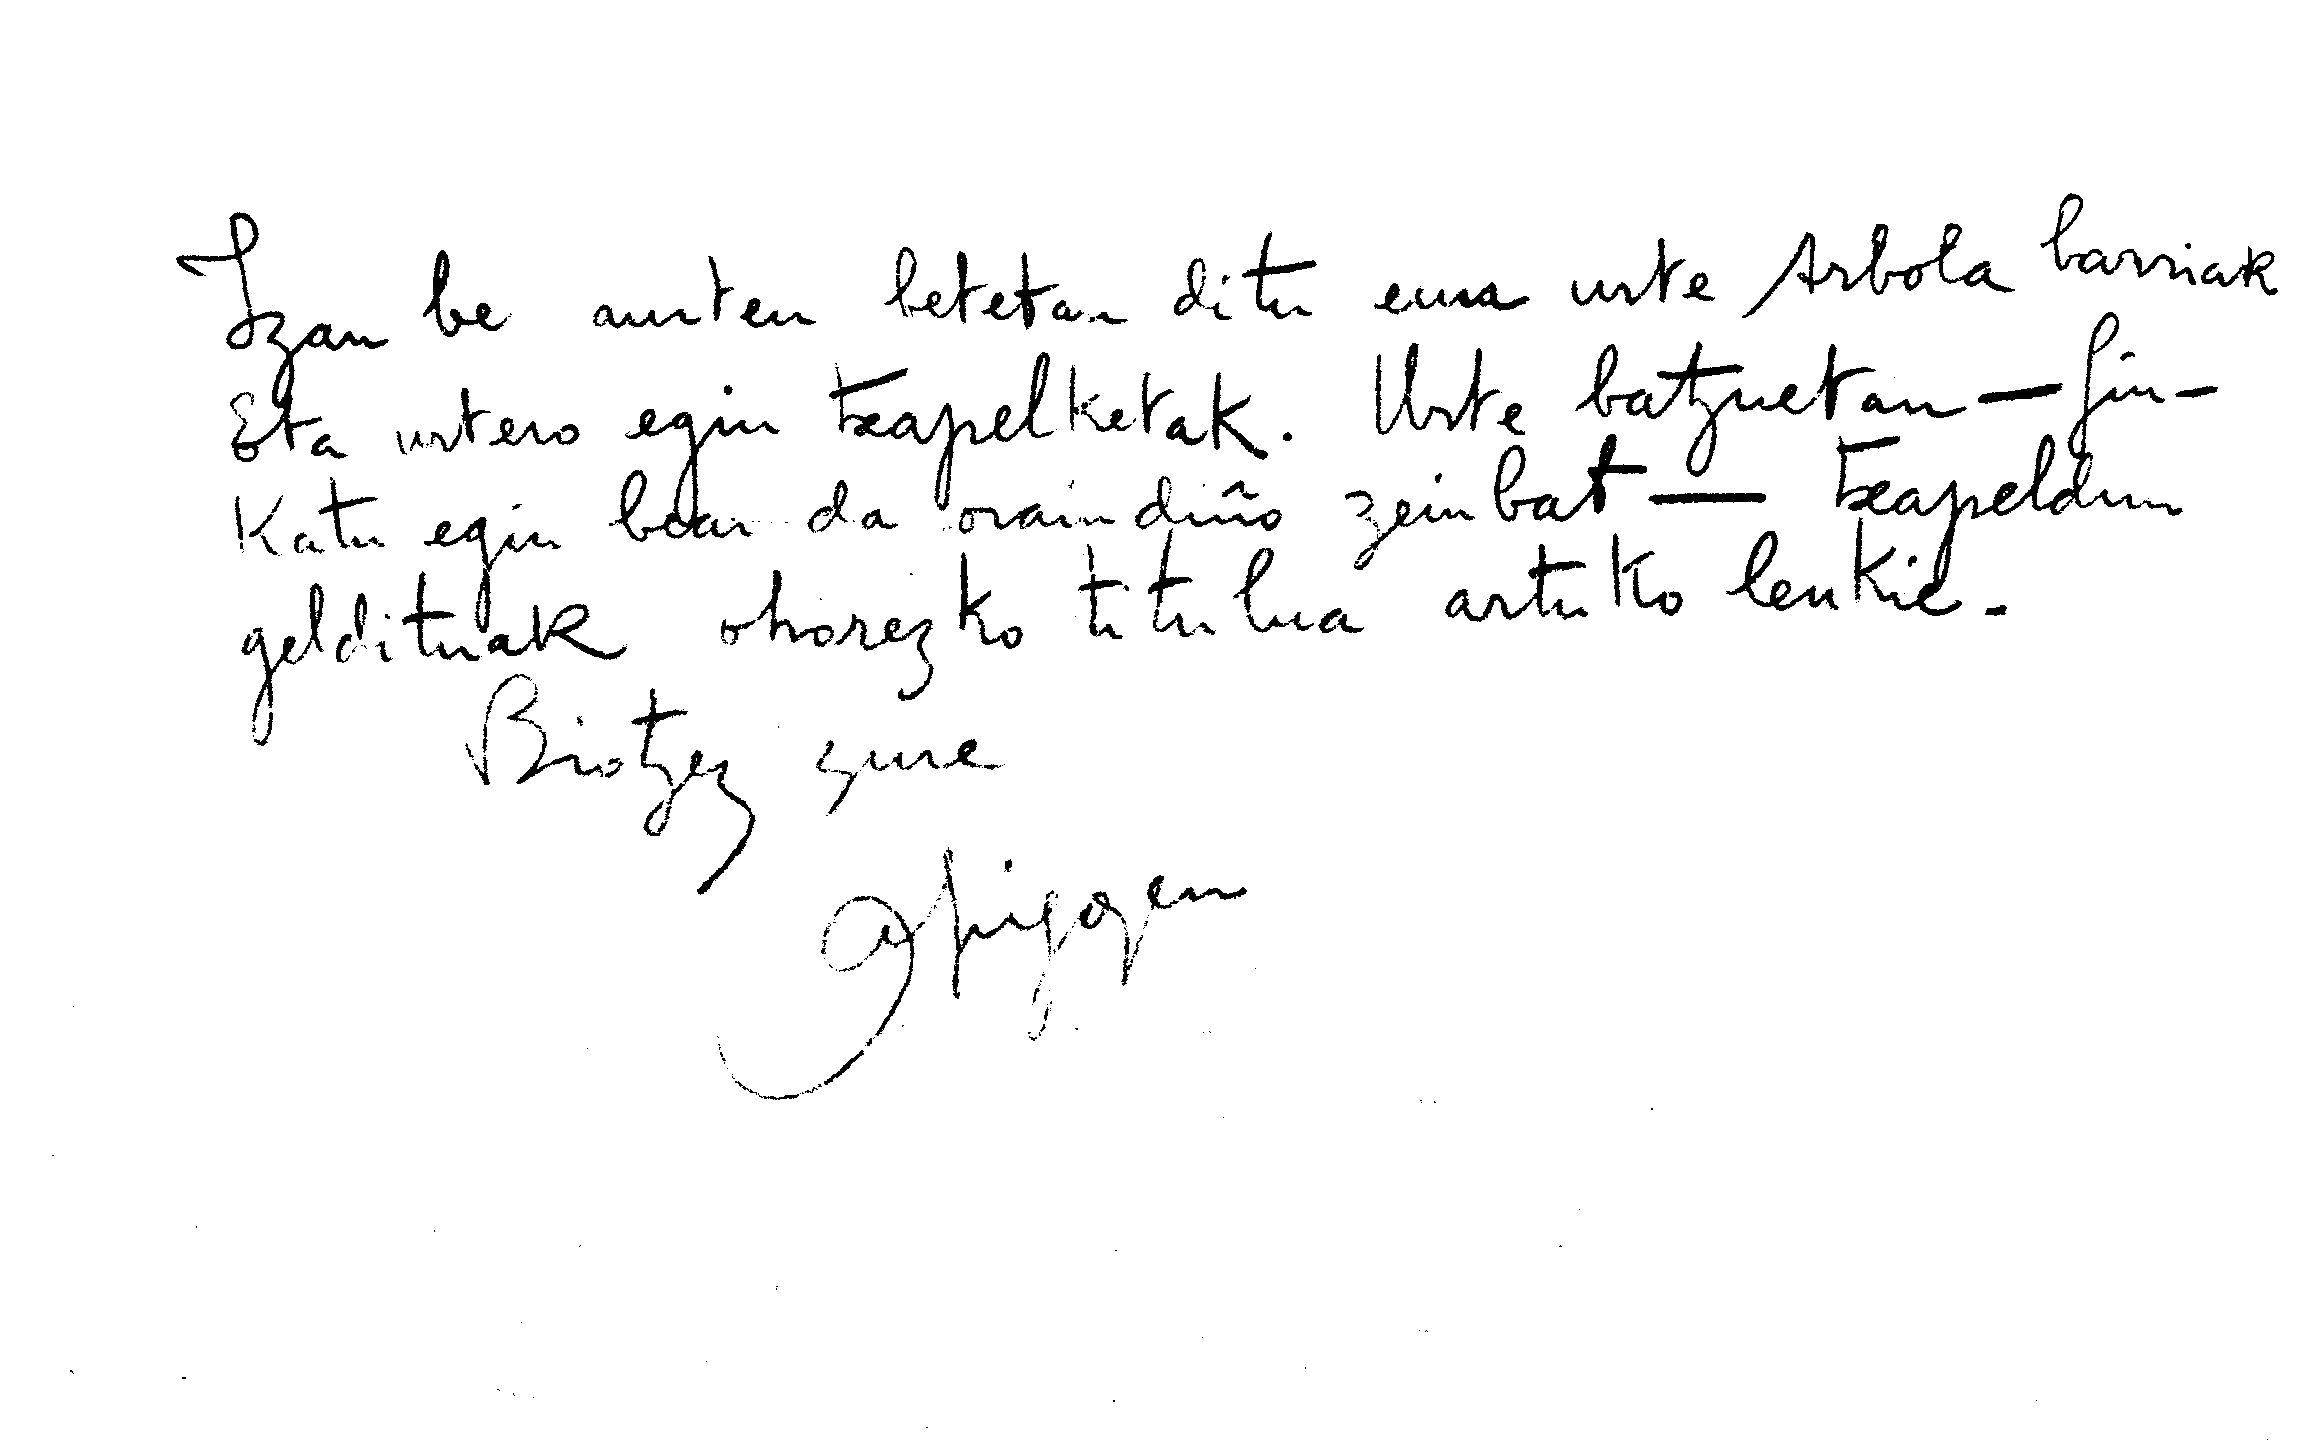 Izan be aurten betetan ditu eun urte Arbola barriak
Eta urtero egin txapelketak. Urte batzuetan — fin-
katu egin bear da oraindiño zeinbat — txapeldun
geldituak ohorezko titulua artuko leukie.
Biotzez zure